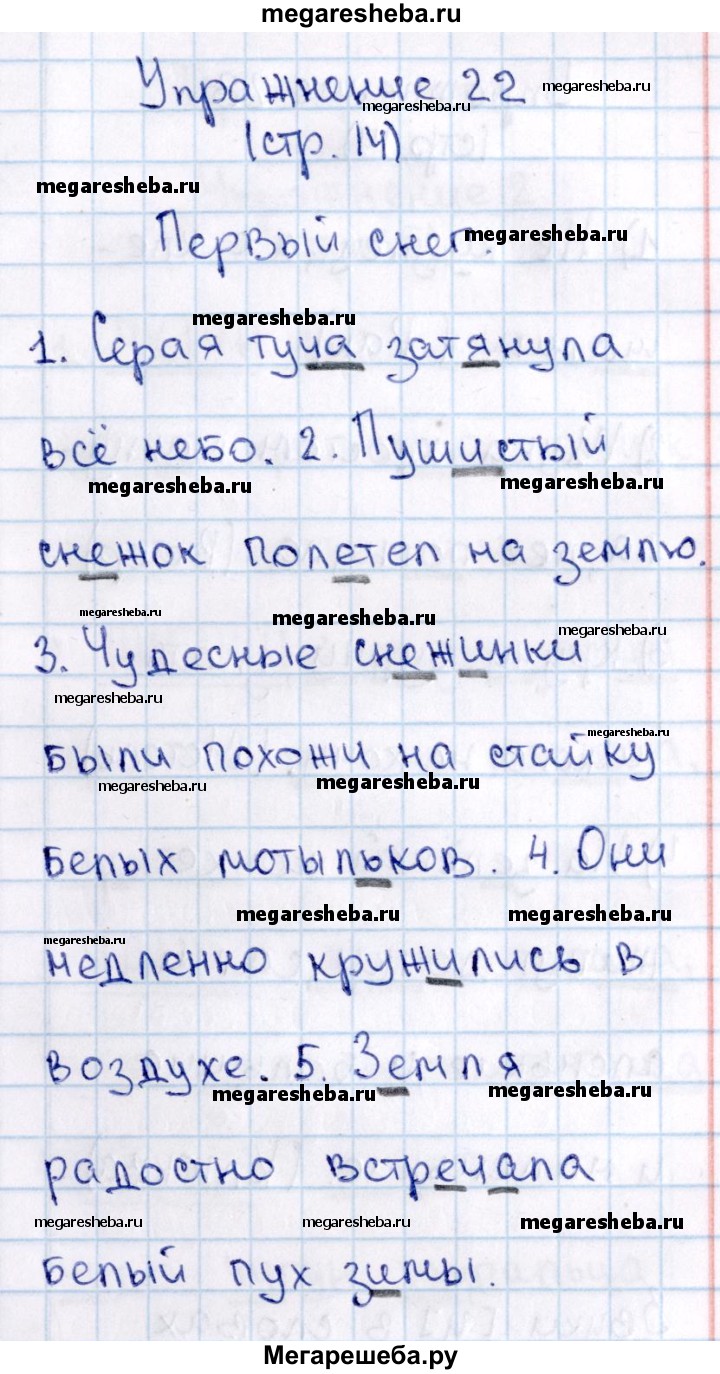 megaresheba.ru
Упражнение 22
megaresheba.ru
megaresheba.ru
(стр. 14)
megaresheba.ru
Первый снег.
megaresheba.ru
megaresheba.ru
1. Серая туча затянула
всё небо. 2. Пушистый
megaresheba.ru
megaresheba.ru
снежок полетел на землю.
megaresheba.ru
megaresheba.ru
megaresheba.ru
3. Чудесные снежинки
megaresheba.ru
megaresheba.ru
были похожи на стайку
megaresheba.ru
megaresheba.ru
белых мотыльков. 4. Они
megaresheba.ru
megaresheba.ru
megaresheba.ru
медленно кружились в
воздухе. 5. Земля
megaresheba.ru
megaresheba.ru
радостно встречала
megaresheba.ru
megaresheba.ru
megaresheba.ru
белый пух зимы.
Мегарешеба.ру